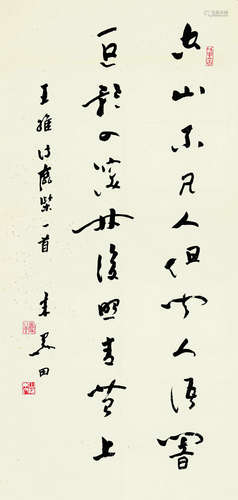 空山不见人但闻人语响
返影入深林复照青苔上
王维诗鹿柴一首
朱农田